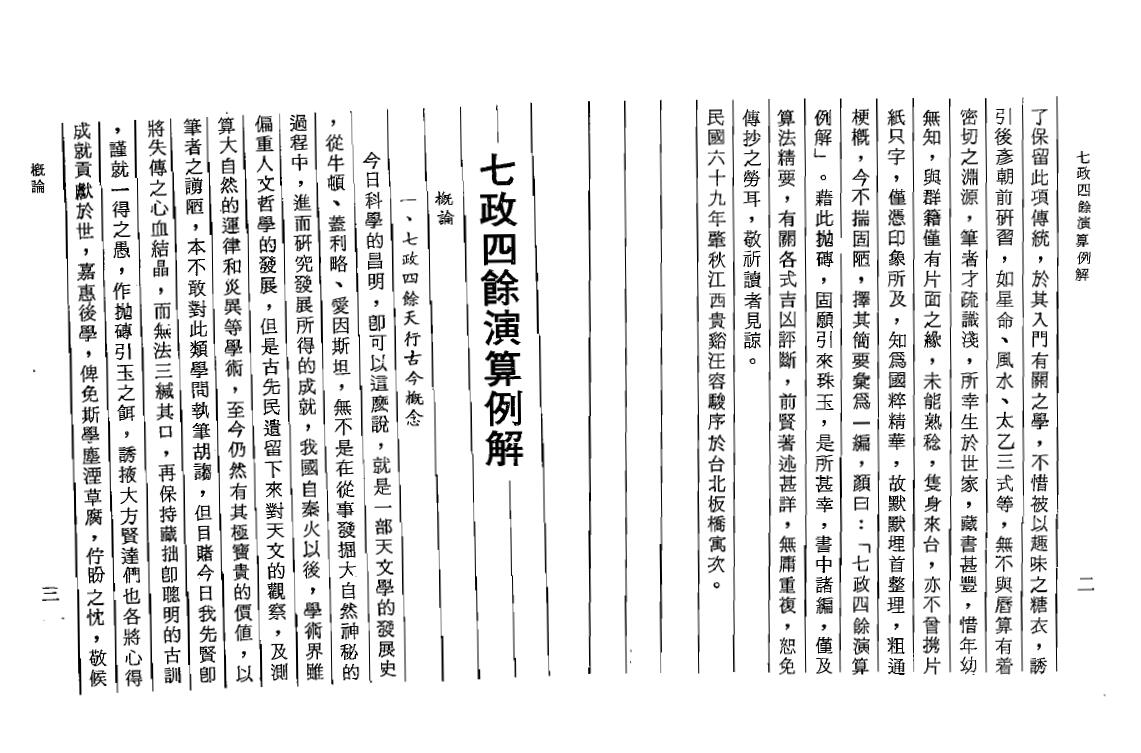 七政四餘演算例解
二
了保留此項傳統，於其入門有關之學，不惜被以趣味之糖衣，誘
引後彥朝前研習，如星命、風水、太乙三式等，無不與曆算有着
密切之淵源，筆者才疏識淺，所幸生於世家，藏書甚豐，惜年幼
無知，與群籍僅有片面之緣，未能熟稔，隻身來台，亦不曾携片
紙只字，僅憑印象所及，知爲國粹精華，故默默埋首整理，粗通
梗槪，今不揣固陋，擇其簡要彙爲一編，顏曰：「七政四餘演算
例解」。藉此拋磚，固願引來珠玉，是所甚幸，書中諸編，僅及
算法精要，有關各式吉凶評斷，前賢著述甚詳，無庸重複，恕免
傳抄之勞耳，敬祈讀者見諒。
民國六十九年肇秋江西貴谿汪容駿序於台北板橋寓次。
七政四餘演算例解
槪論
一、七政四餘天行古今槪念
今日科學的昌明，卽可以這麽說，就是一部天文學的發展史
，從牛頓、蓋利略、愛因斯坦，無不是在從事發掘大自然神秘的
過程中，進而硏究發展所得的成就，我國自秦火以後，學術界雖
偏重人文哲學的發展，但是古先民遺留下來對天文的觀察，及測
算大自然的運律和災異等學術，至今仍然有其極寶貴的價値，以
筆者之謭陋，本不敢對此類學問執筆胡謅，但目賭今日我先賢卽
將失傳之心血結晶，而無法三緘其口，再保持藏拙卽聰明的古訓
，謹就一得之愚，作拋磚引玉之餌，誘掖大方賢達們也各將心得
成就貢獻於世，嘉惠後學，俾免斯學塵湮草腐，佇盼之忱，敬候
槪論
三